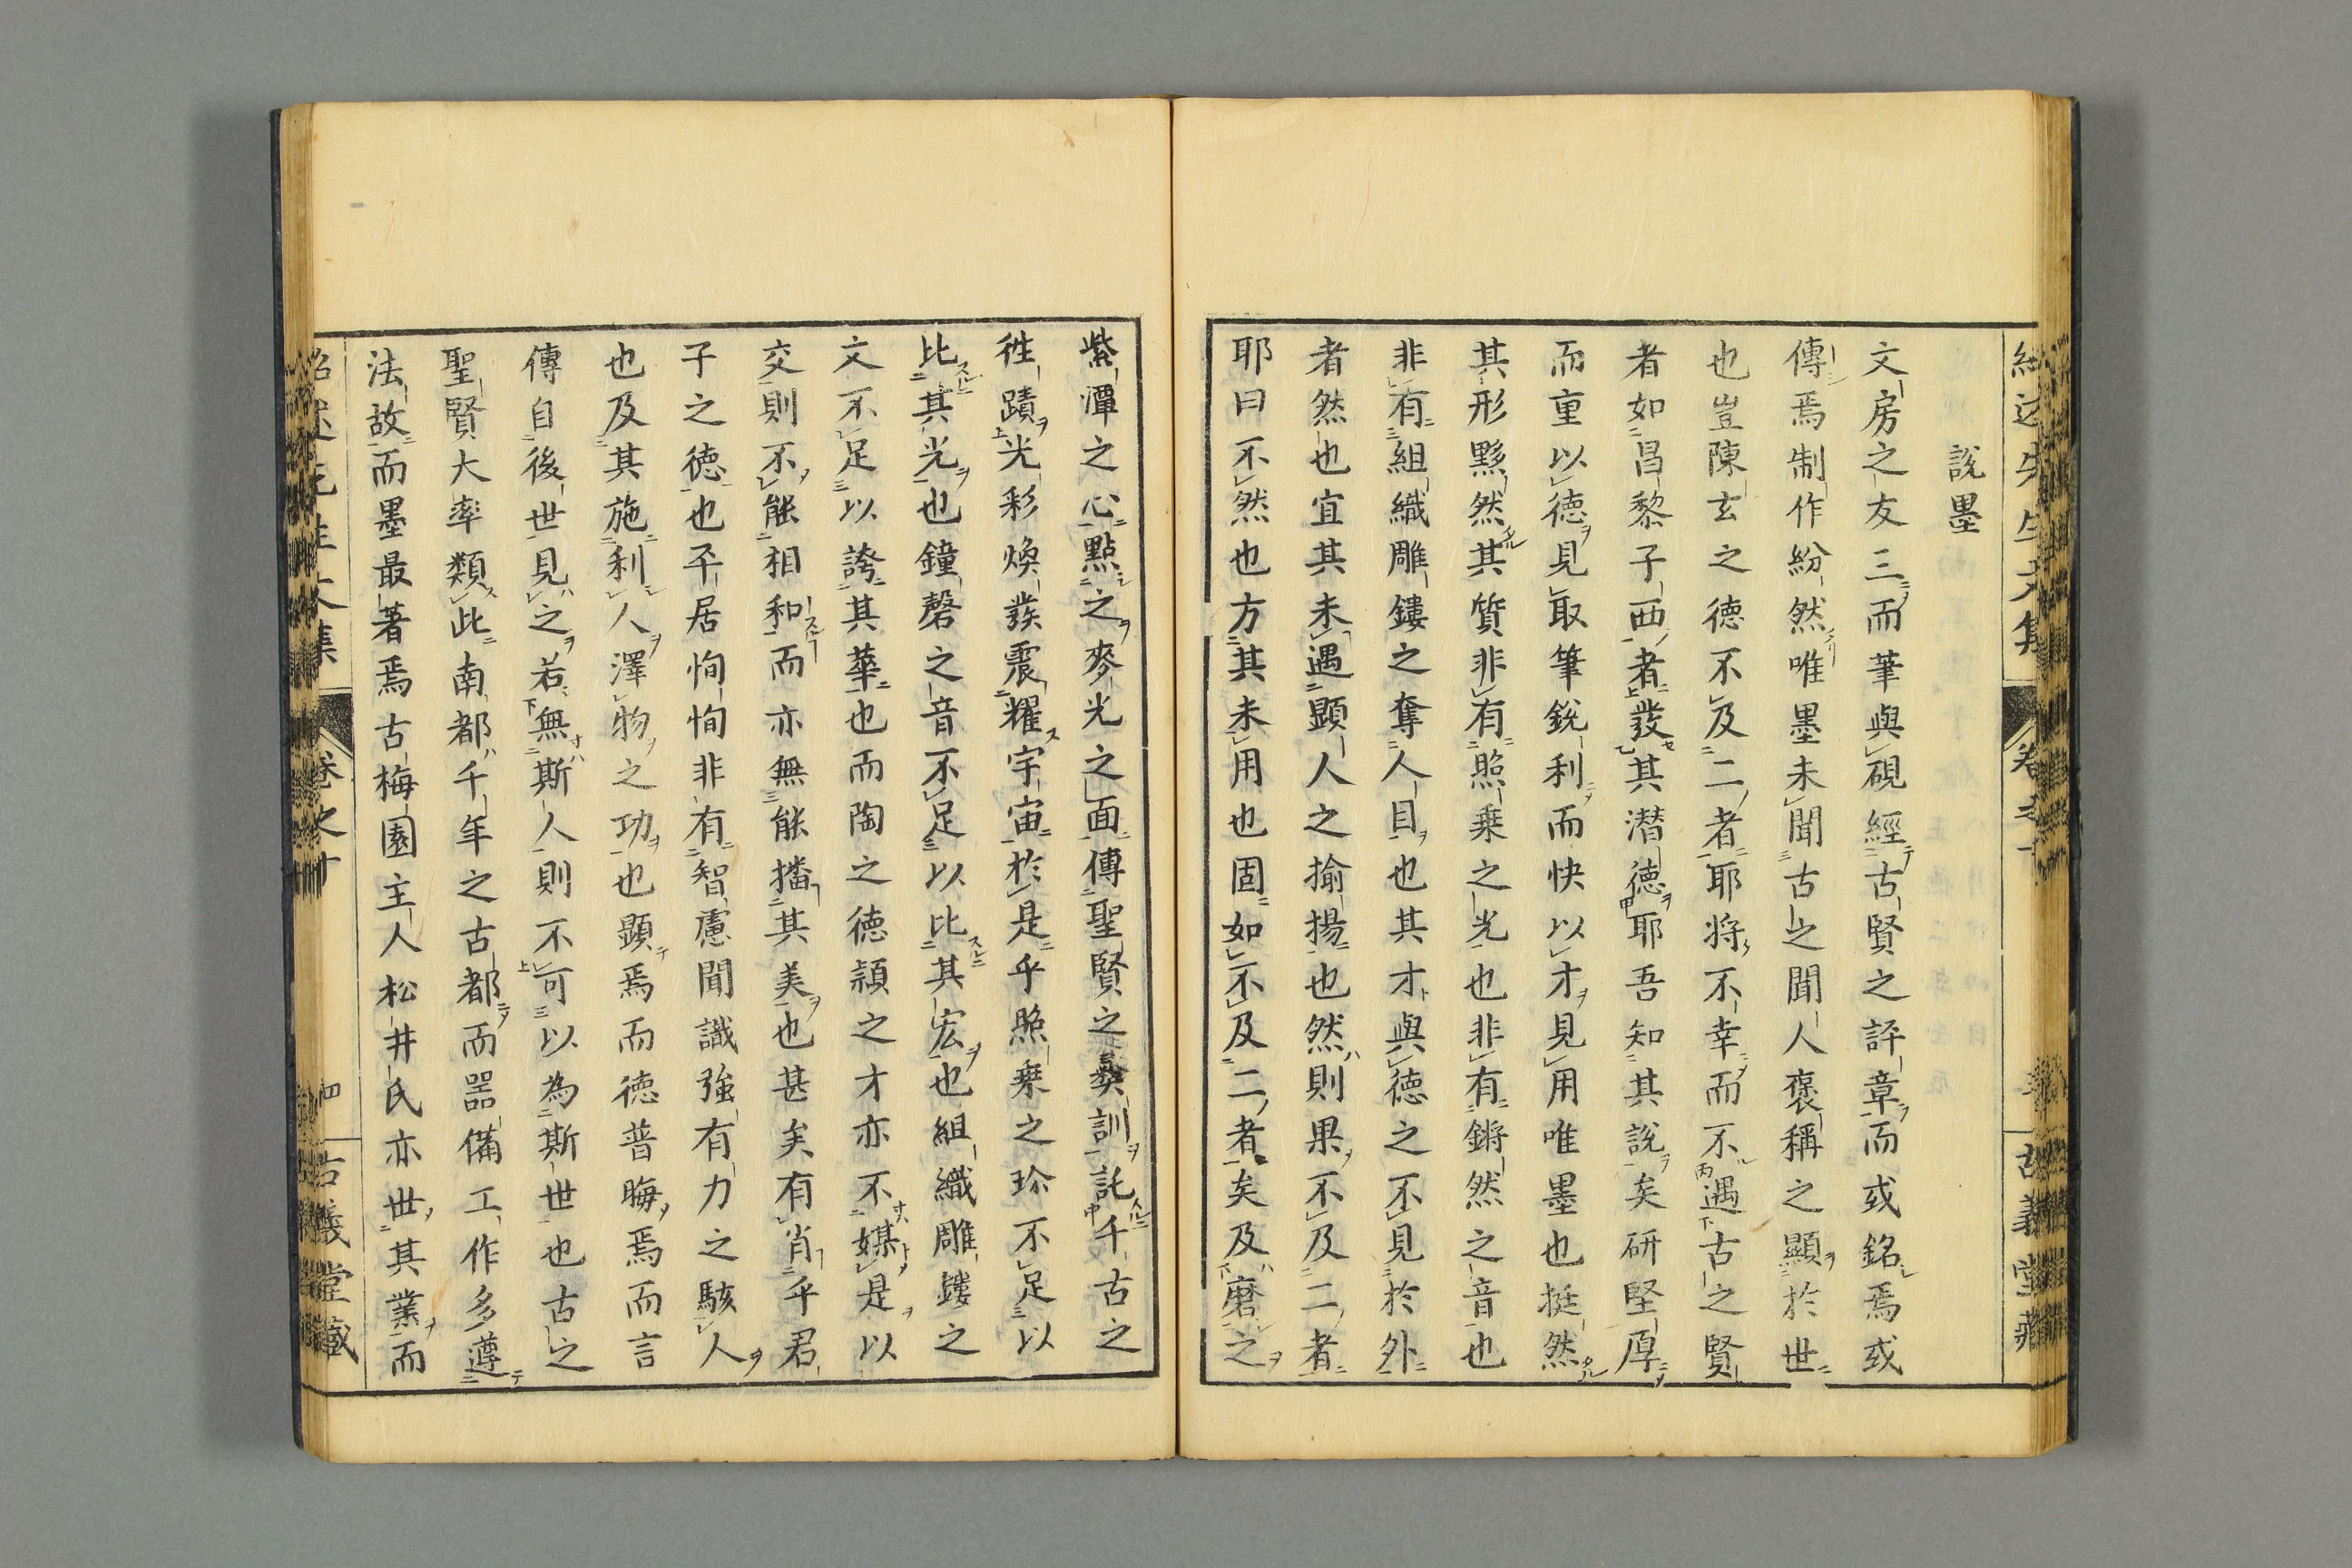 説墨
文房之友三而筆與硯經古賢之評章而或銘焉或
傳焉制作紛然唯墨未聞古之聞人褒稱之顯於世
也豈陳玄之徳不及二者耶将不幸而不遇古之賢
者如昌黎子西者發其潜徳耶吾知其説矣研堅厚
而重以徳見取筆鋭利而快以才見用唯墨也挺然
其形黟然其質非有照乗之光也非有鏘然之音也
非有組織雕鏤之奪人目也其才與徳之不見於外
者然也宜其未遇顕人之揄揚也然則果不及二者
耶曰不然也方其未用也固如不及二者矣及磨之
紫潭之心點之麥光之面傳聖賢之彜訓託千古之
徃蹟光彩煥發震耀宇宙於是乎照乗之珎不足以
比其光也鐘磬之音不足以比其宏也組織雕鏤之
文不足以誇其華也而陶之徳頴之才亦不媒是以
交則不能相和而亦無能播其美也甚矣有肖乎君
子之徳也平居恂恂非有智慮聞識強有力之駭人
也及其施利人澤物之功也顕焉而徳普晦焉而言
傳自後世見之若無斯人則不可以為斯世也古之
聖賢大率類此南都千年之古都而噐備工作多遵
法故而墨最著焉古梅園主人松井氏亦世其業而
巻之十
四
古義堂藏